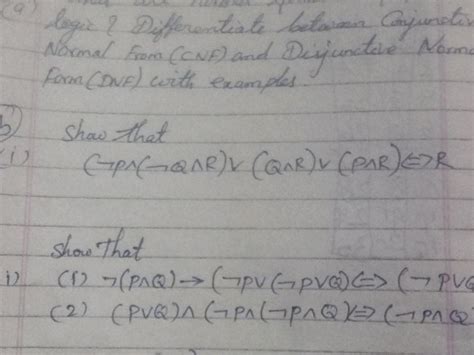 (a)
logic? Differentiate between Conjuncti
Normal From (CNF) and Disjunctive Norm
Form (DNF) with examples.
b)
Show that
(i) (¬P∧(¬Q∧R)∨(Q∧R)∨(P∧R)⇔R
Show That
i) (1) ¬(P∧Q)→(¬P∨(¬P∨Q)⇔(¬P∨Q
(2) (P∨Q)∧(¬P∧(¬P∧Q)⇔(¬P∧Q